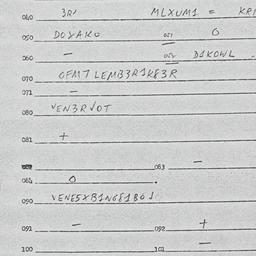 040 3R1 MLXUM1 = KRI
050 DOYAKO 051 O
060 — 052 D1KOWL
070 OFMTLEMB3R1K83R
071 —
080 VEN3RVOT
081 +
083 —
084 O
090 VENE5XB1NG81BO1
091 — 092 +
100 101 —